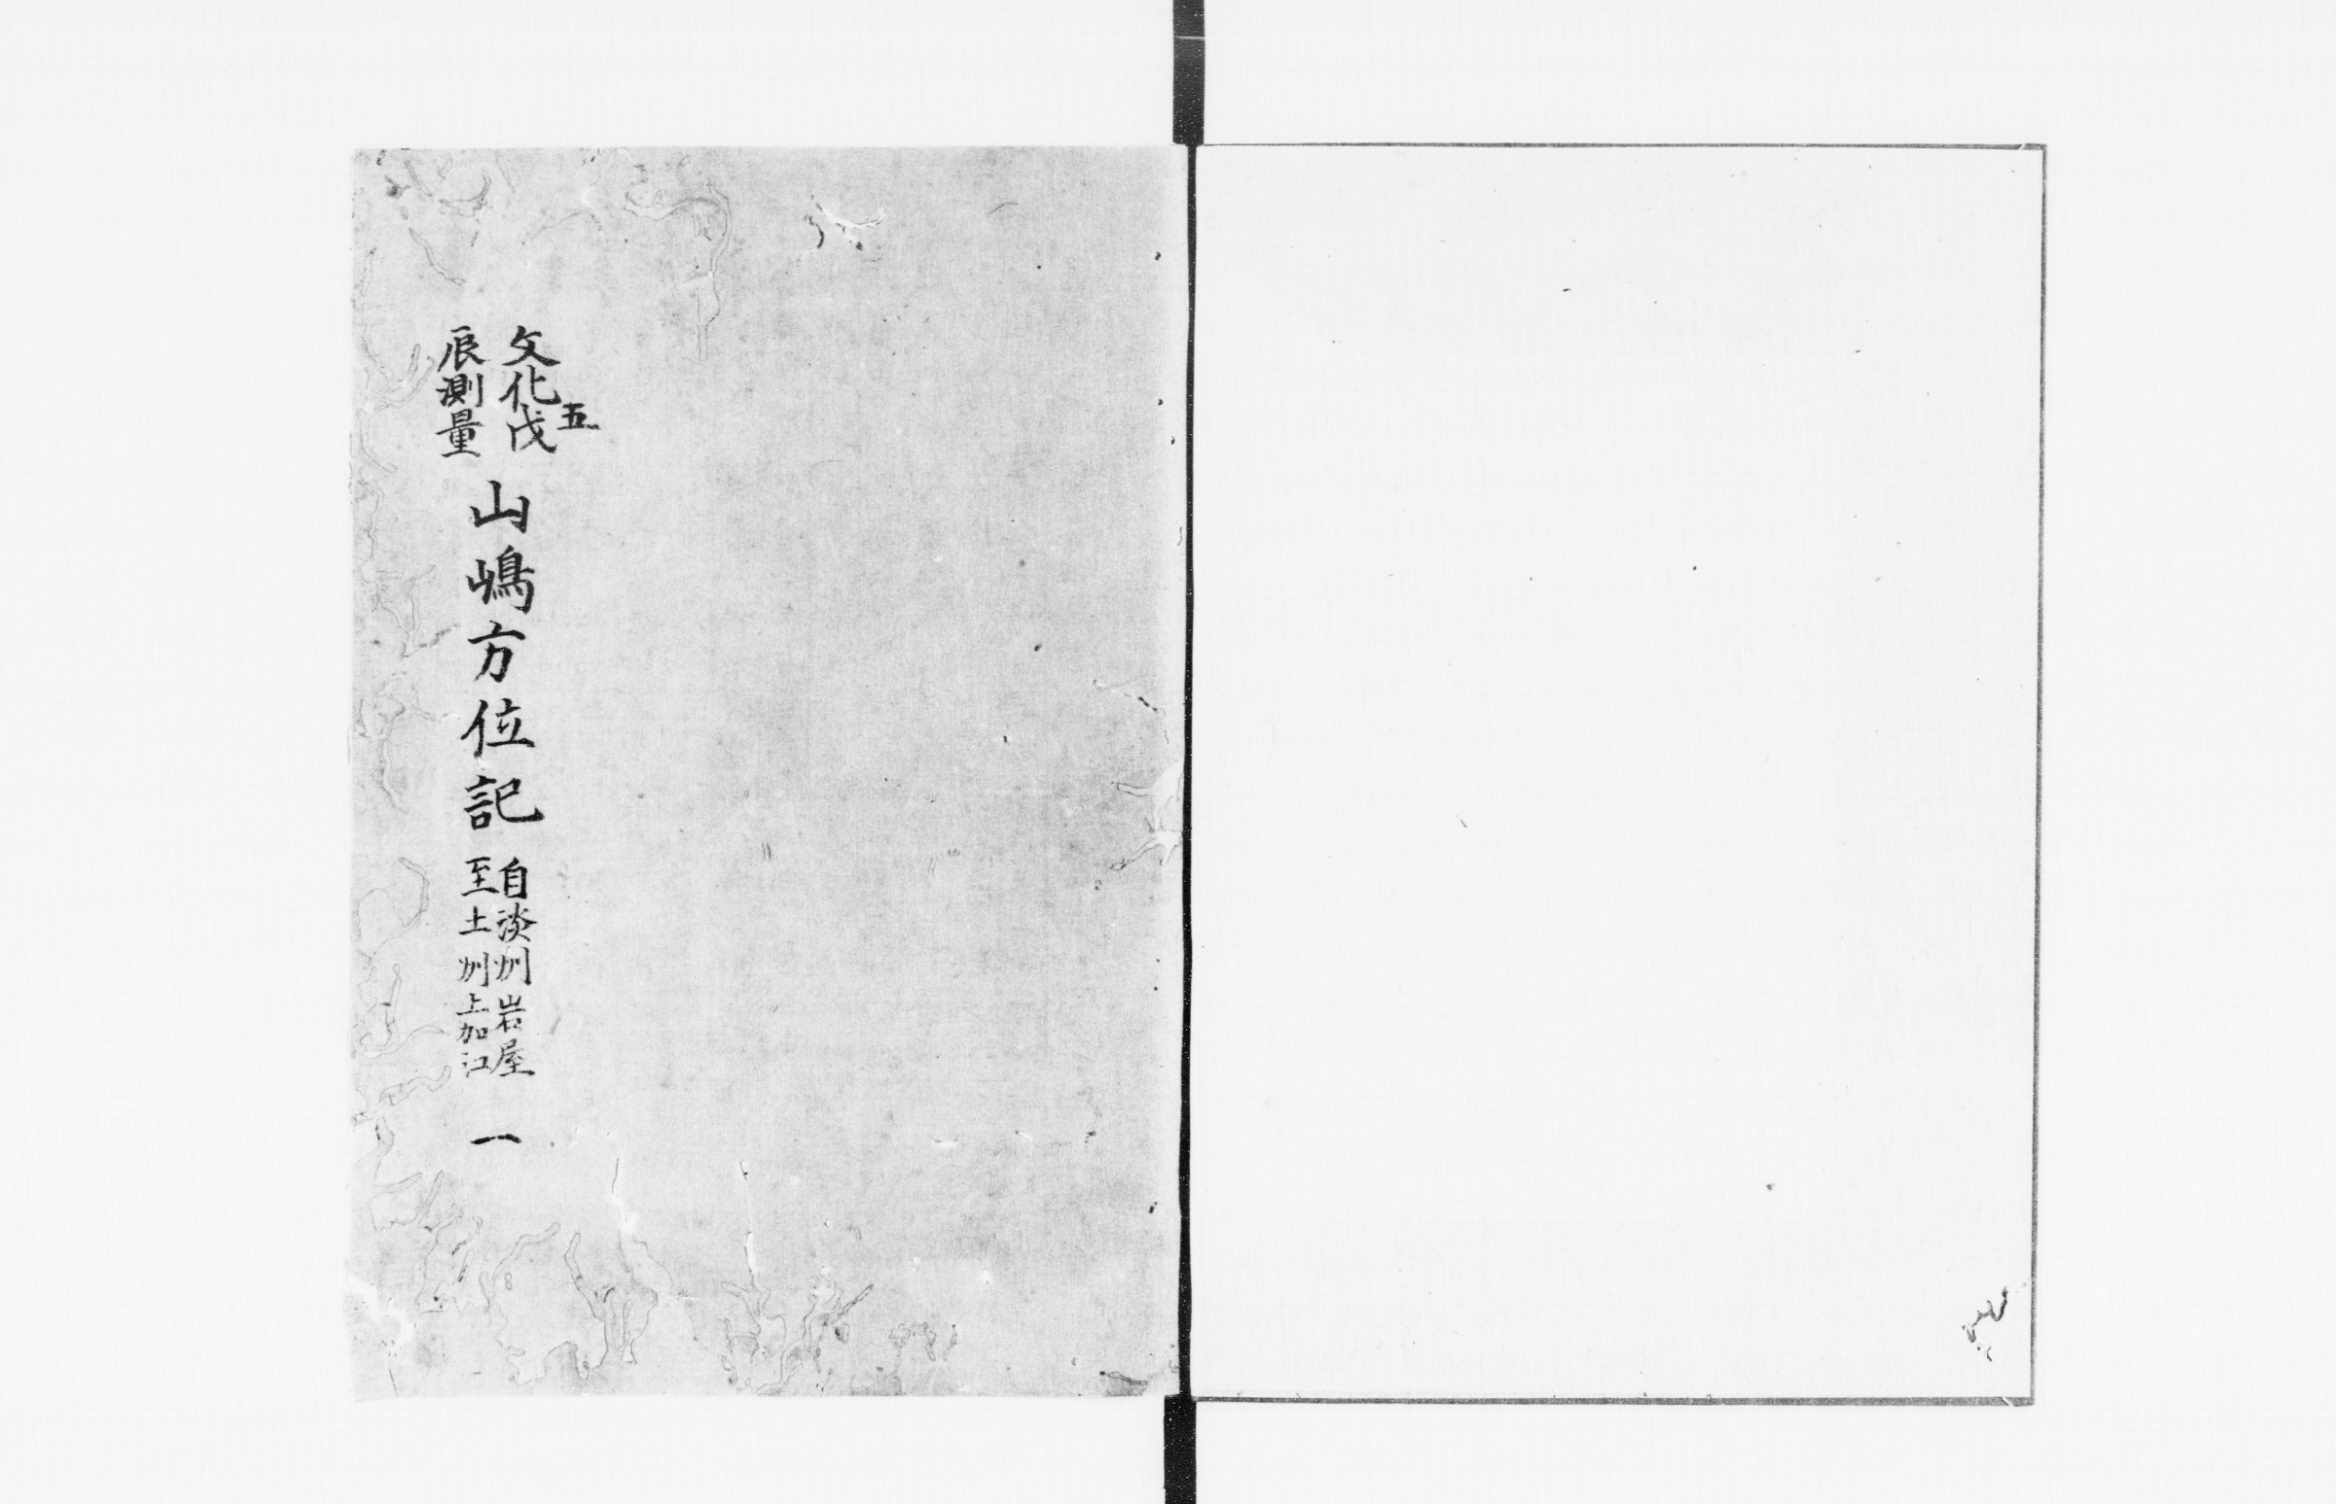 文化五戊
辰測量
山嶋方位記
自淡州岩屋
至土州上加江
一